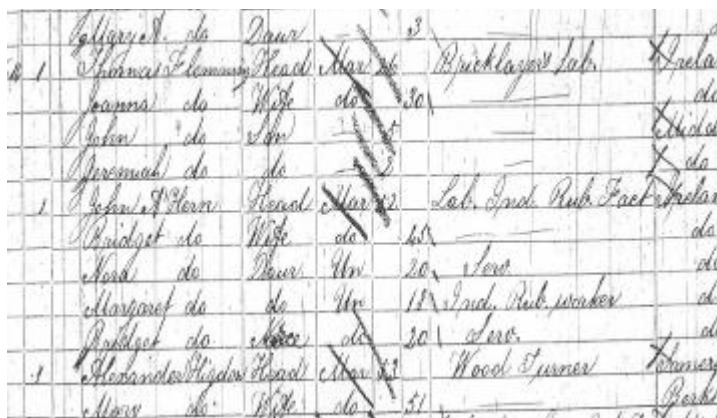 Mary A. do Daur 3
1 Thomas Flemming Head Mar 36 Bricklayer's Lab. Irelan
Joanna do Wife do 30 do
John do Son 5 Middl
Jeremiah do do 3 do
1 John A'Hern Head Mar 52 Lab. Ind. Rub. Fact Irelan
Bridget do Wife do 45 do
Nora do Daur Un 20 Serv. do
Margaret do do Un 18 Ind. Rub. worker do
Bridget do Niece do 20 Serv. do
1 Alexander Head Mar 53 Wood Turner
Mary do Wife do 51 Berks